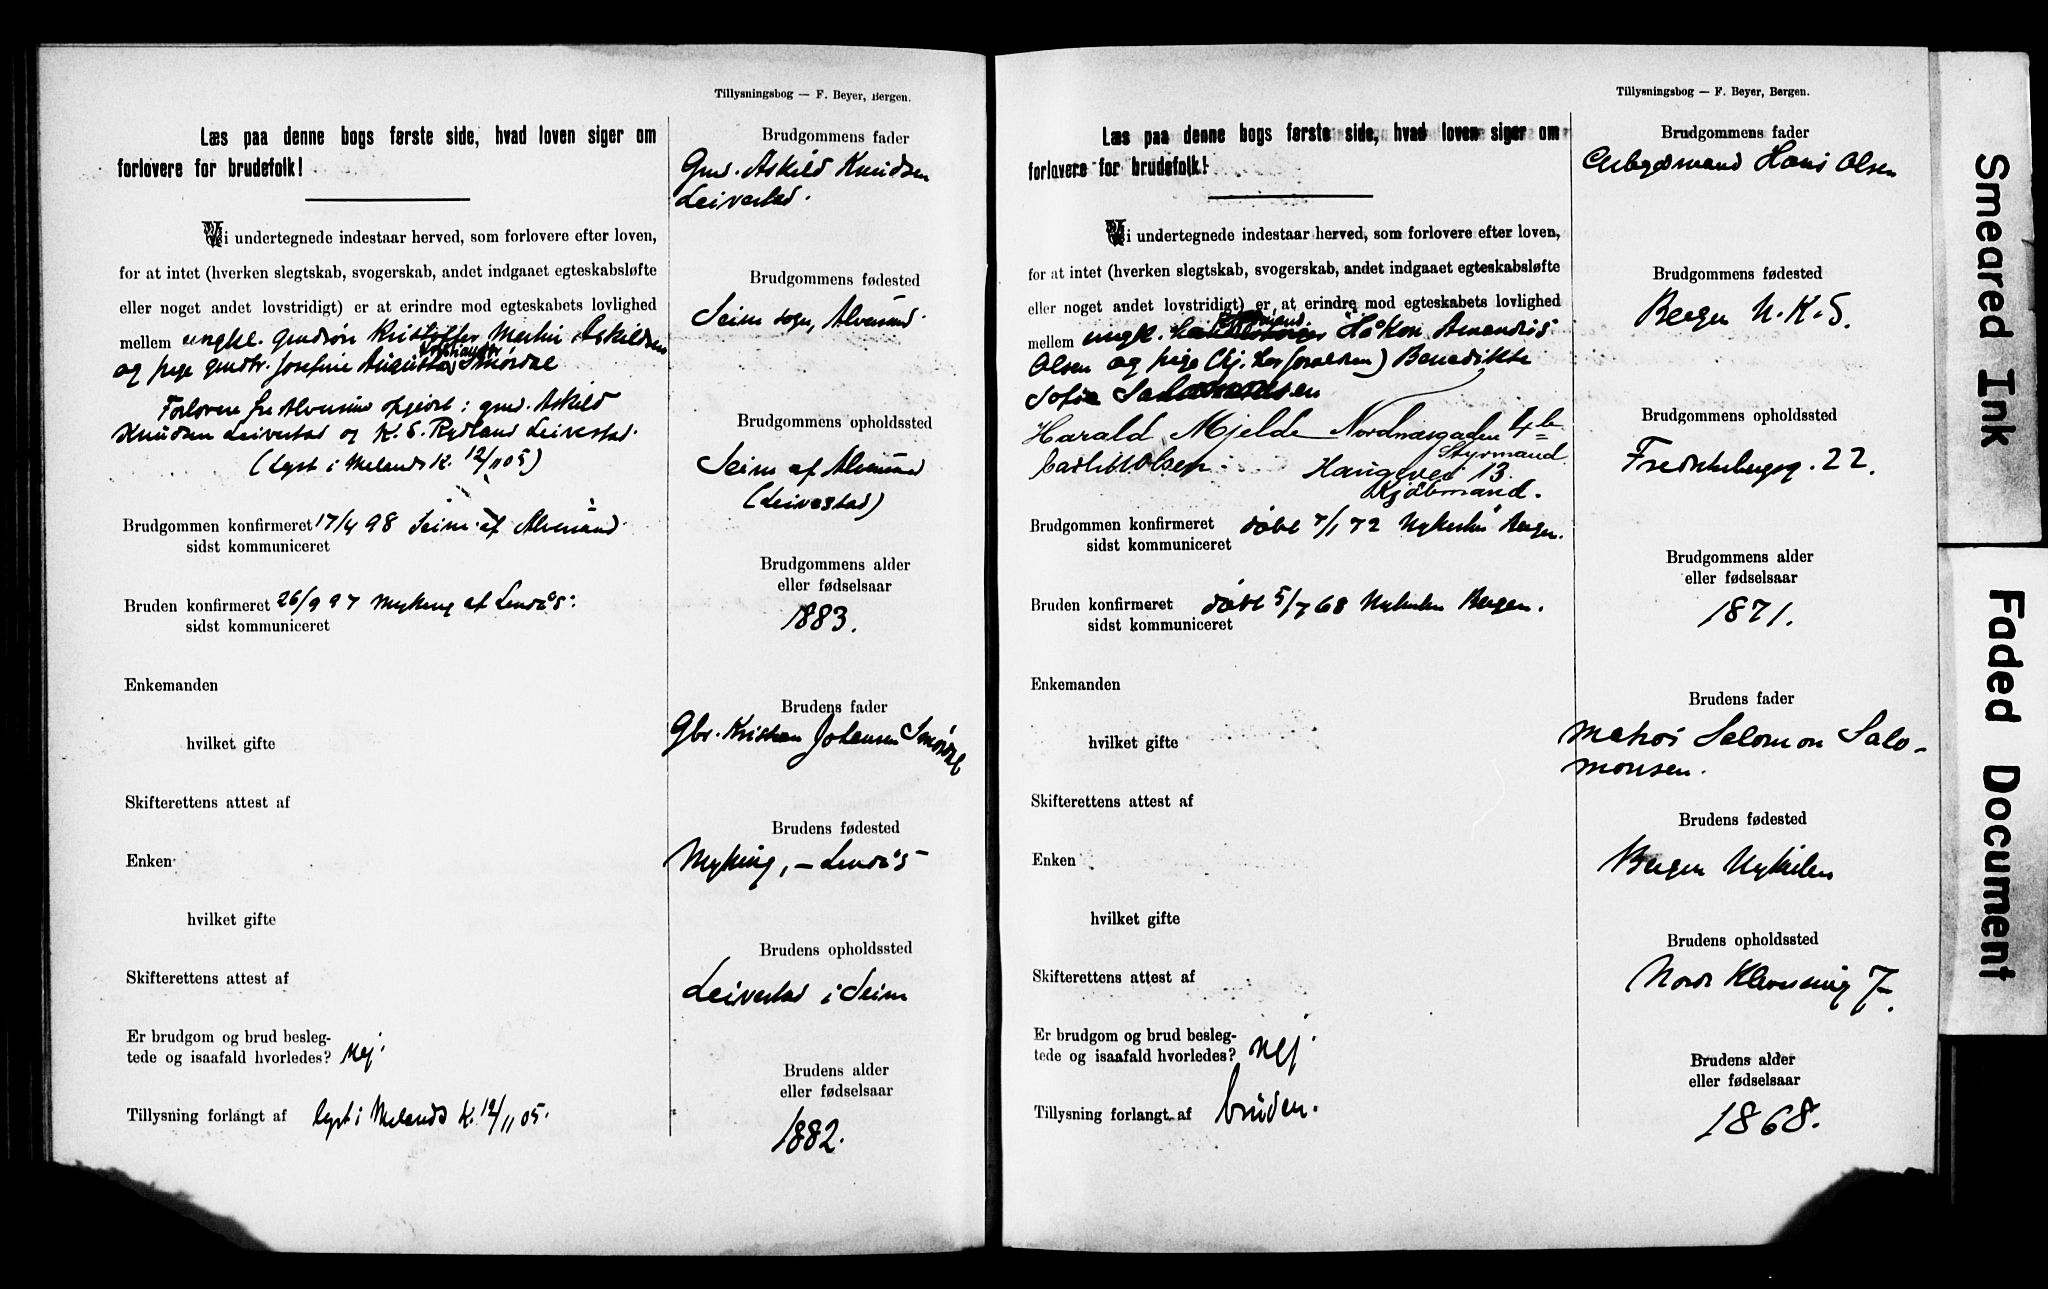 Tillysningsbog — F. Beyer, Bergen.
Læs paa denne bogs første side, hvad loven siger om
forlovere for brudefolk!
Vi undertegnede indestaar herved, som forlovere efter loven,
for at intet (hverken slegtskab, svogerskab, andet indgaaet egteskabsløfte
eller noget andet lovstridigt) er at erindre mod egteskabets lovlighed
mellem ungkl. gmdsøn Kristoffer Martin Askildsen
og pige gmdtr. Josefine Augusta Smørdal
Forlovere fra Alversund opgivet: gmd. Askild
Knudsen Leivestad og K. S. Rydland Leivestad.
(Lyst i Melands K. 12/11 05)
Brudgommen konfirmeret 17/4 98 Seim af Alversund.
sidst kommuniceret
Bruden konfirmeret 26/9 97 Myking af Lindås.
sidst kommuniceret
Enkemanden
hvilket gifte
Skifterettens attest af
Enken
hvilket gifte
Skifterettens attest af
Er brudgom og brud besleg-
tede og isaafald hvorledes? Nej.
Tillysning forlangt af lyst i Melands K. 12/11 05.
Brudgommens fader
Gmd. Askild Knudsen
Leivestad.
Brudgommens fødested
Seim sogn, Alversund.
Brudgommens opholdssted
Seim af Alversund
(Leivestad)
Brudgommens alder
eller fødselsaar
1883.
Brudens fader
Gbr. Kristian Johansen Smørdal
Brudens fødested
Myking, – Lindås –
Brudens opholdssted
Leivestad i Seim
Brudens alder
eller fødselsaar
1882.
Tillysningsbog — F. Beyer, Bergen.
Læs paa denne bogs første side, hvad loven siger om
forlovere for brudefolk!
Vi undertegnede indestaar herved, som forlovere efter loven,
for at intet (hverken slegtskab, svogerskab, andet indgaaet egteskabsløfte
eller noget andet lovstridigt) er at erindre mod egteskabets lovlighed
mellem ungk. Håkon Amandus
Olsen og pige Benedikte
Sofie Salomonsen
Harald Mjelde Nordnæsgaden 4b
Styrmand
Haugevei 13.
Kjøbmand.
Brudgommen konfirmeret døbt 7/1 72 Nykirken Bergen.
sidst kommuniceret
Bruden konfirmeret døbt 5/7 68 Nykirken Bergen.
sidst kommuniceret
Enkemanden
hvilket gifte
Skifterettens attest af
Enken
hvilket gifte
Skifterettens attest af
Er brudgom og brud besleg-
tede og isaafald hvorledes? nej
Tillysning forlangt af bruden.
Brudgommens fader
Arbejdsmand Hans Olsen
Brudgommens fødested
Bergen N.K.S.
Brudgommens opholdssted
Fredriksbergsg. 22.
Brudgommens alder
eller fødselsaar
1871.
Brudens fader
Matros Salomon Salo-
monsen.
Brudens fødested
Bergen Nykirken
Brudens opholdssted
Nord. 7.
Brudens alder
eller fødselsaar
1868.
Smeared Ink
Faded Document